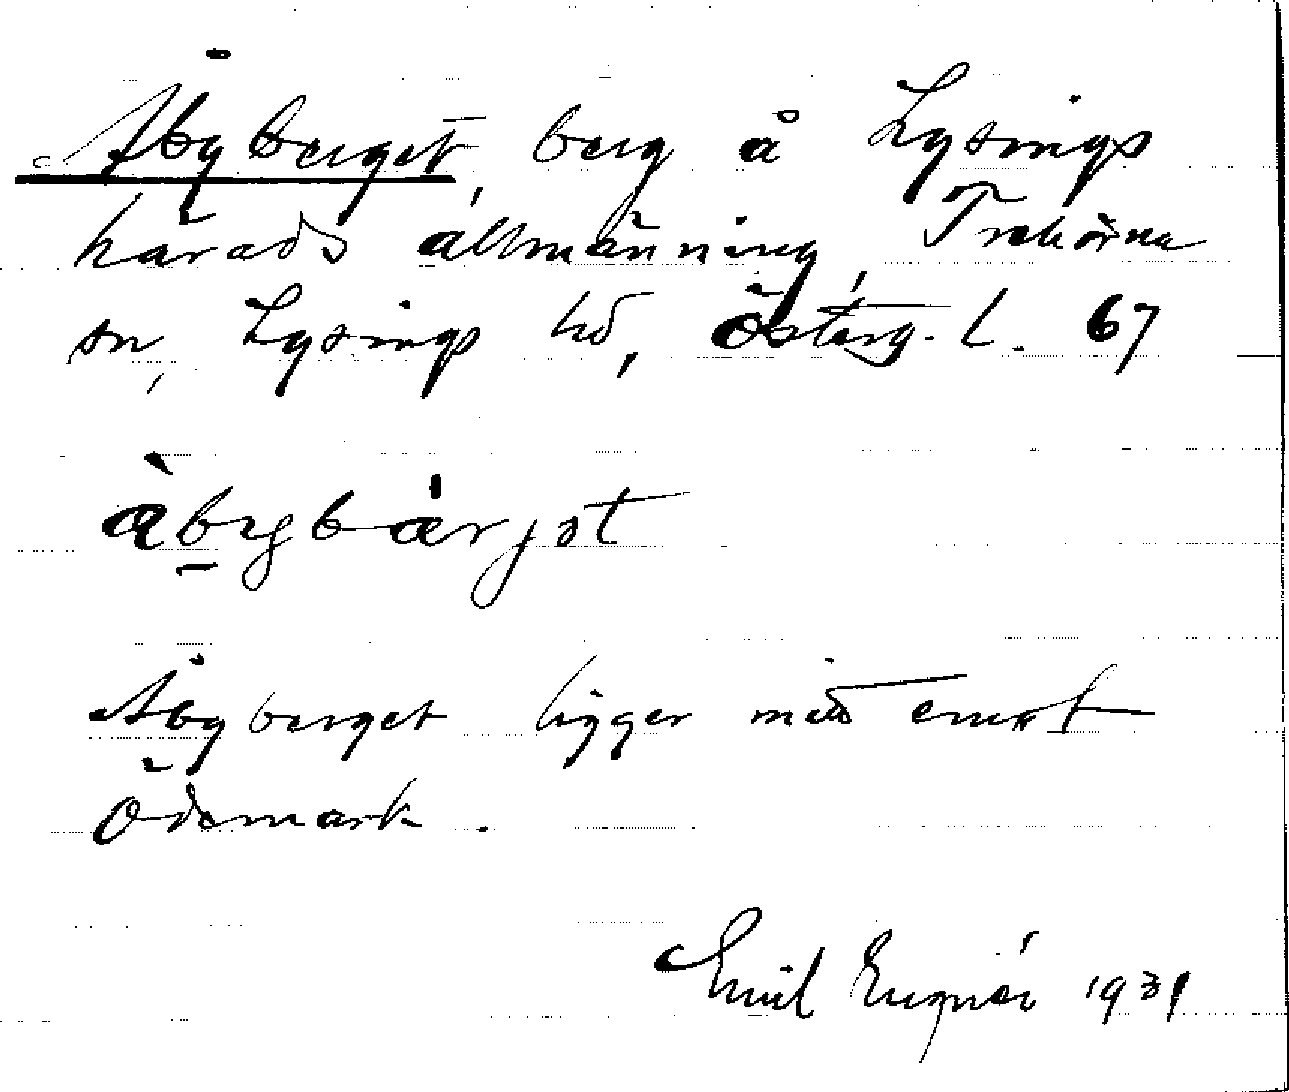 Åbyberget, berg å Lysings
härads allmänning, Trehörna
sn, Lysings hd, Österg. l. 67
Åbyberget ligger midt emot
Ödemark.
Emil 1931